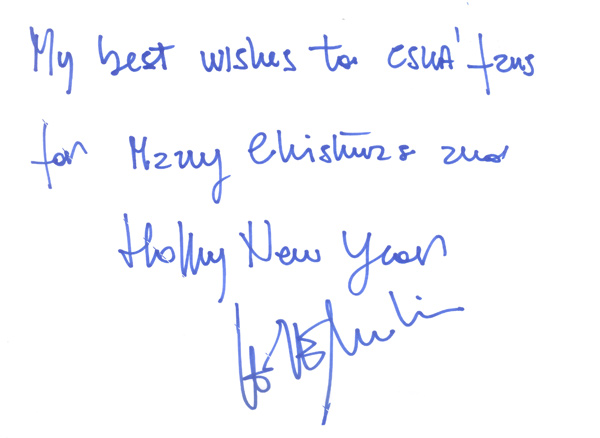 My best wishes to CSKA' fans
for Marry Christmas and
Holly New Year